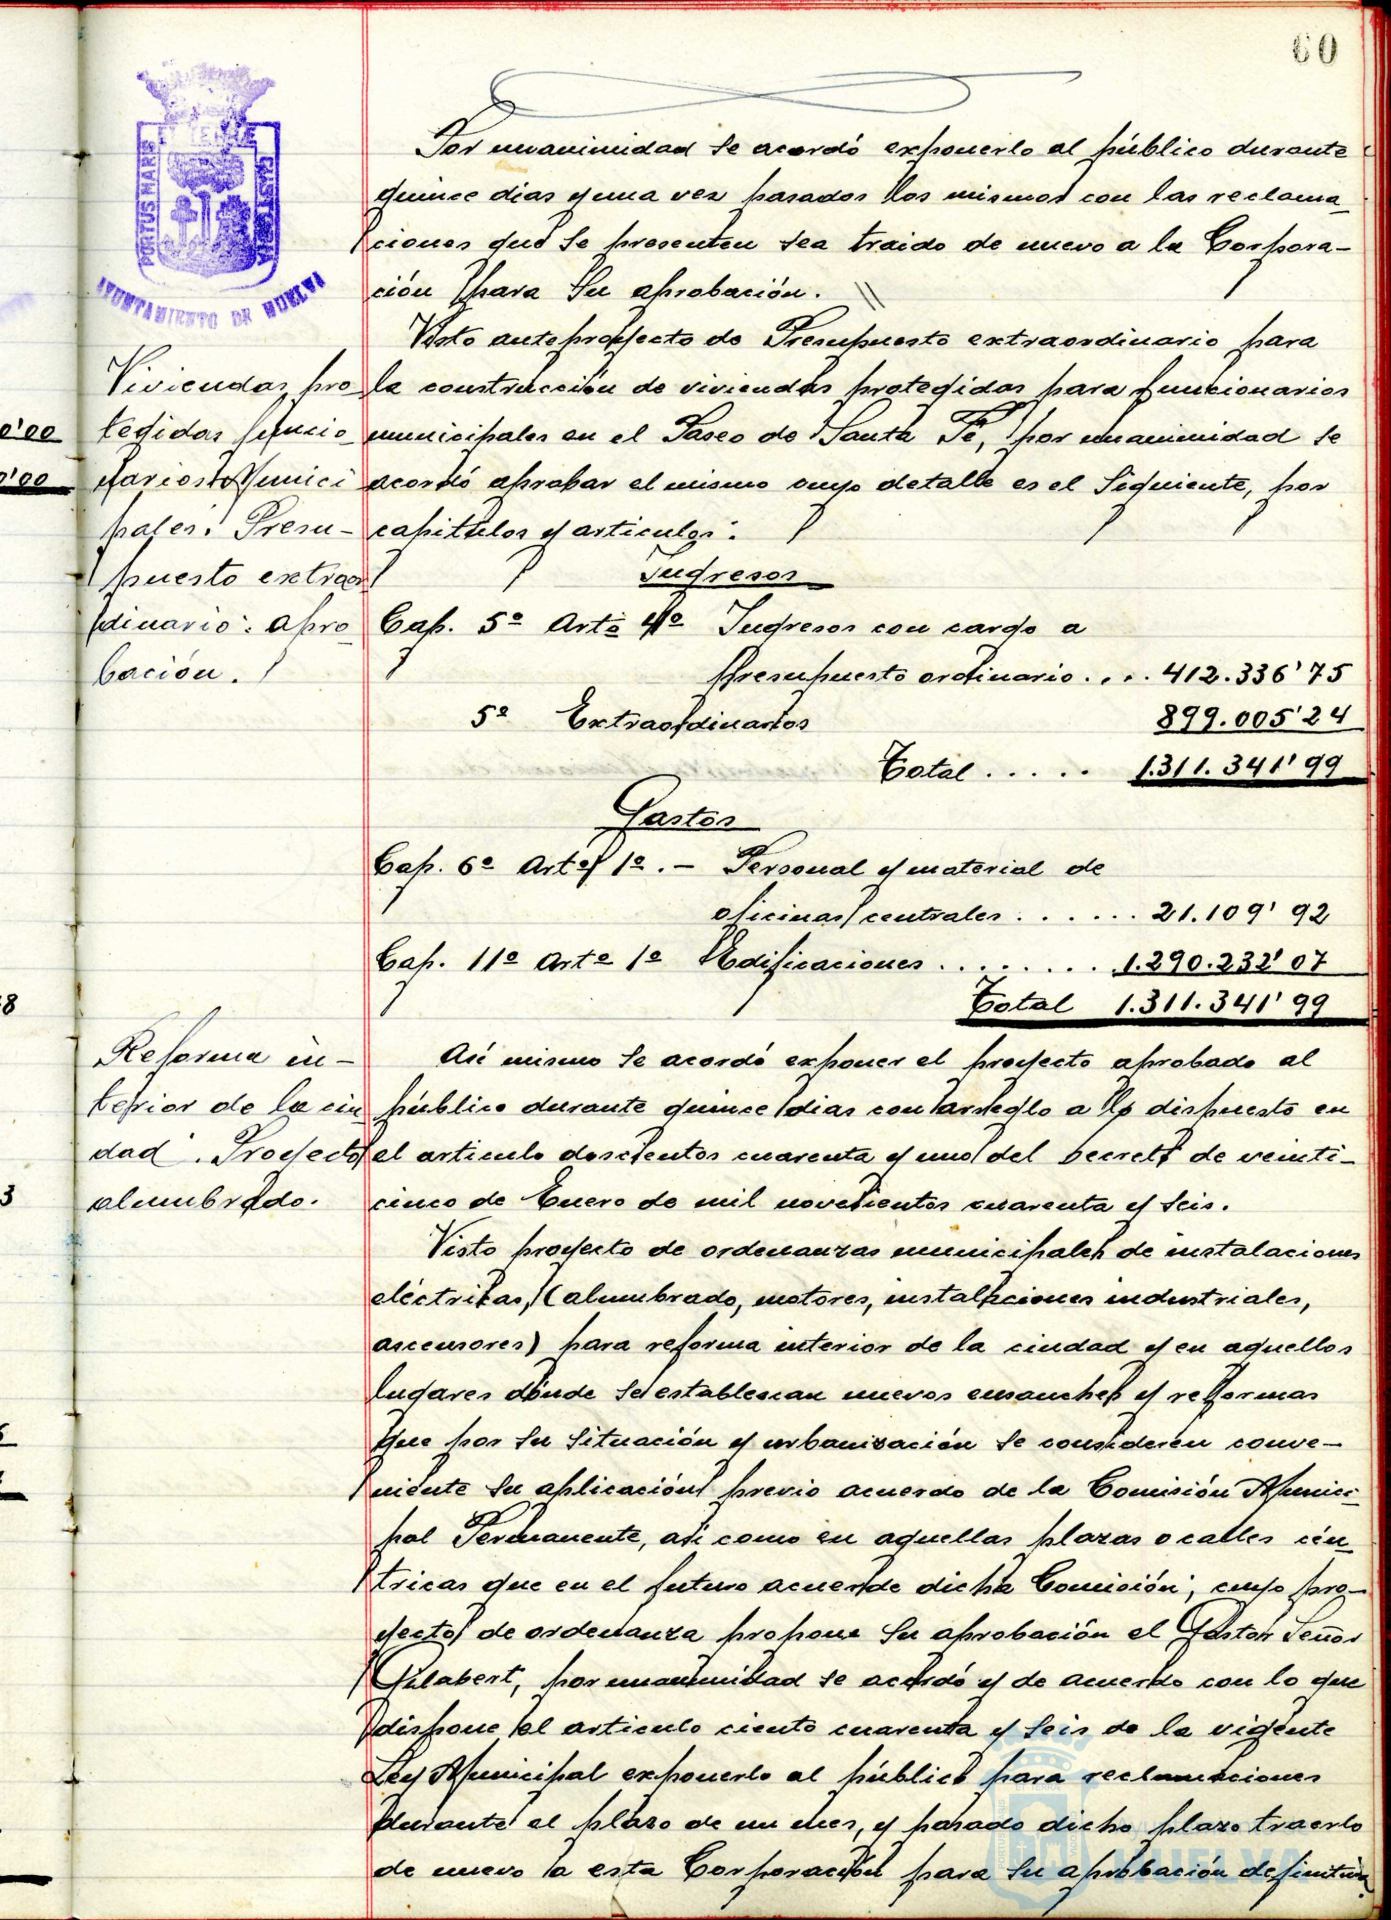 60
PORTUS MARIS ET TERRAE CUSTODIA
AYUNTAMIENTO DE HUELVA
Por unanimidad se acordó exponerlo al público durante
quince dias y una vez pasados los mismos con las reclama-
ciones que se presenten sea traido de nuevo a la Corpora-
ción para su aprobación.
Viviendas pro-
tegidas funcio-
narios Munici
pales: Presu-
puesto extraor
dinario: apro-
bación.
Visto anteproyecto de Presupuesto extraordinario para
la construcción de viviendas protegidas para funcionarios
municipales en el Paseo de Santa Fé, por unanimidad se
acordó aprobar el mismo cuyo detalle es el siguiente, por
capitulos y articulos:
Ingresos
Cap. 5º Artº 4º Ingresos con cargo a
presupuesto ordinario.... 412.336'75
5º Extraordinarios 899.005'24
Total ..... 1.311.341'99
Gastos
Cap. 6º Artº 1º.- Personal y material de
oficinas centrales ...... 21.109'92
Cap. 11º Artº 1º Edificaciones ........ 1.290.232'07
Total 1.311.341'99
Reforma in-
terior de la ciu
dad. Proyecto
alumbrado.
Asi mismo se acordó exponer el proyecto aprobado al
público durante quince dias con arreglo a lo dispuesto en
el articulo doscientos cuarenta y uno del Decreto de veinti-
cinco de Enero de mil novecientos cuarenta y seis.
Visto proyecto de ordenanzas municipales de instalaciones
eléctricas, (alumbrado, motores, instalaciones industriales,
ascensores) para reforma interior de la ciudad y en aquellos
lugares dónde se establezcan nuevos ensanches y reformas
que por su situación y urbanización se consideren conve-
niente su aplicación previo acuerdo de la Comisión Munici-
pal Permanente, asi como en aquellas plazas o calles cén-
tricas que en el futuro acuerde dicha Comisión; cuyo pro-
yecto de ordenanza propone su aprobación el Gestor Señor
Gilabert, por unanimidad se acordó y de acuerdo con lo que
dispone el articulo ciento cuarenta y seis de la vigente
Ley Municipal exponerlo al público para reclamaciones
durante el plazo de un mes, y pasado dicho plazo traerlo
de nuevo a esta Corporación para su aprobación definitiva.
HUELVA